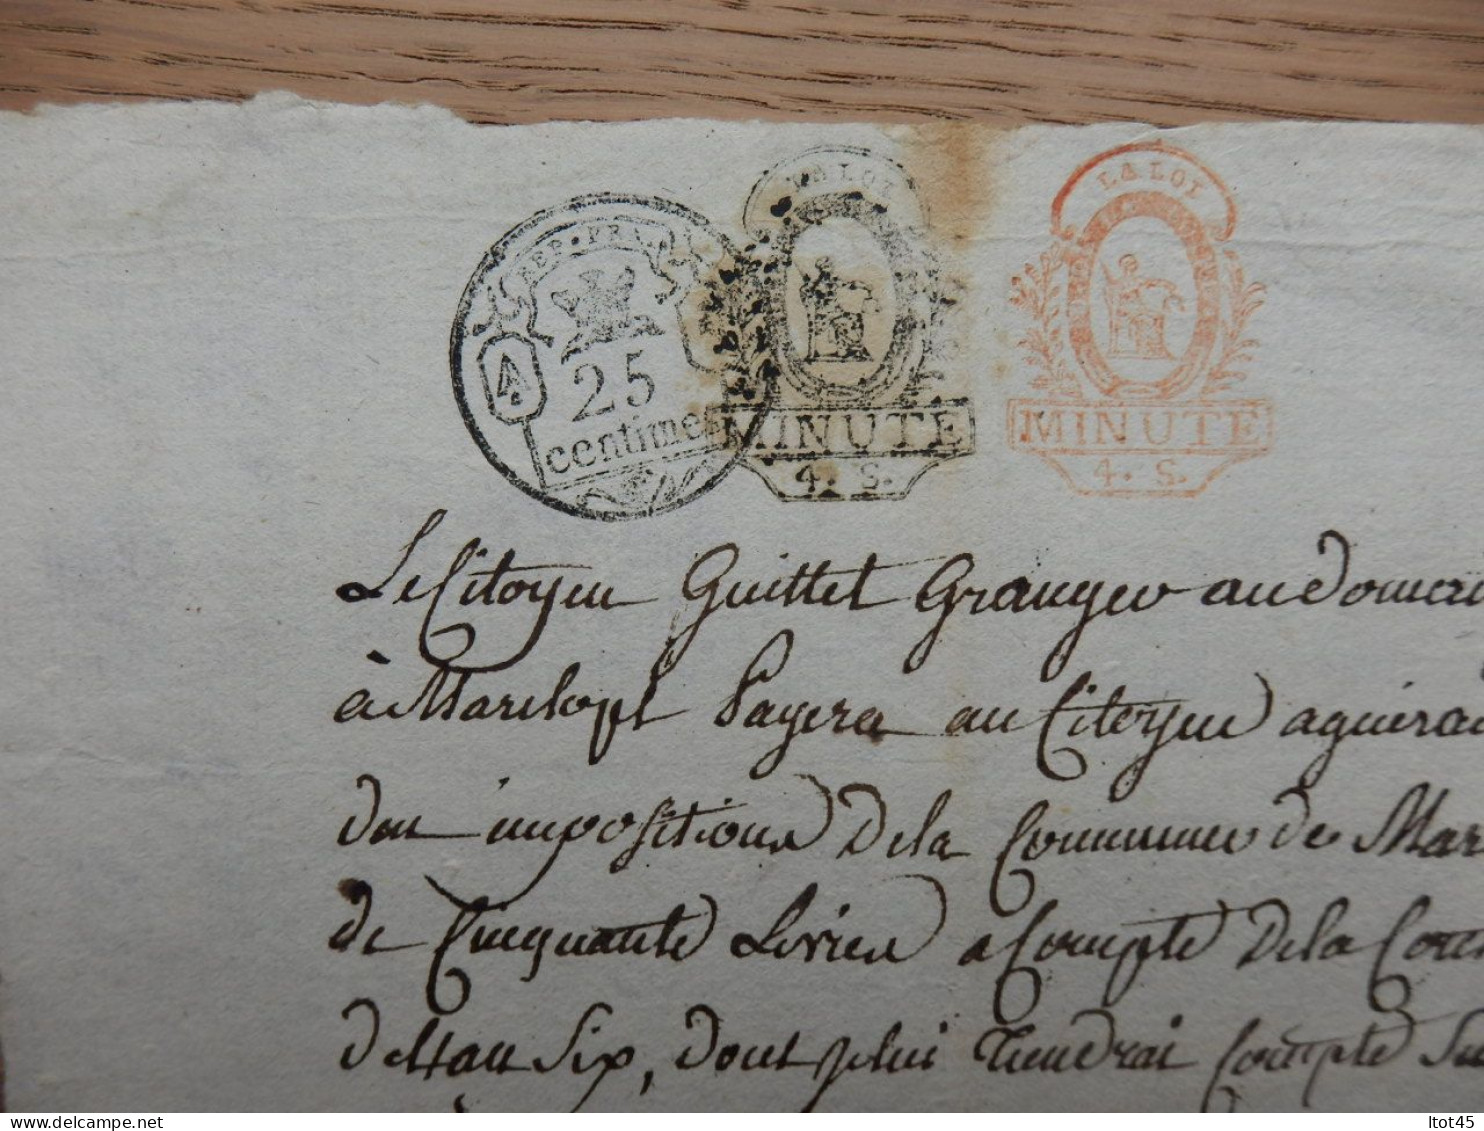 REP. FRA.
4
25
centimes
LA LOI
MINUTE
4. S.
LA LOI
MINUTE
4. S.
Le Citoyen Guittet Granger au domai
à Payera au Citoyen
impositions Dela Commune de Mar
de Cinquante Livres a Compte Dela Con
de Lan Six, dont plui tiendrai Compte Su
ltot45